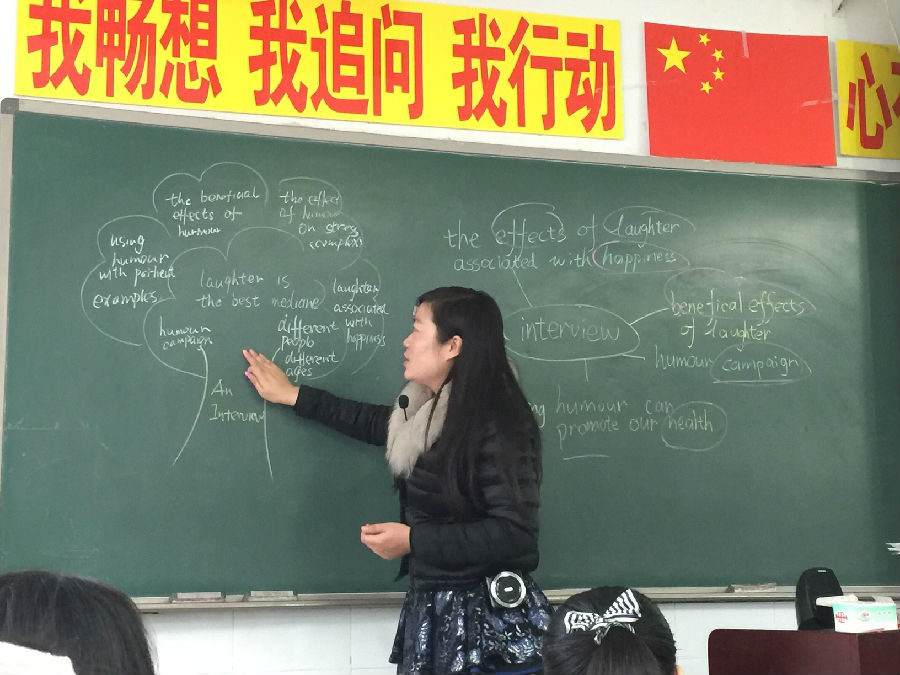 我畅想 我追问 我行动
心
the beneficial
effects of
humour
the effect
of humour
on stress
(complex)
using
humour
with patient
examples
laughter is
the best medicine
laughter
associated
with
happiness
humour
campaign
different
people
different
ages
An
Interview
the effects of laughter
associated with happiness
interview
benefical effects
of laughter
humour campaign
humour can
promote our health